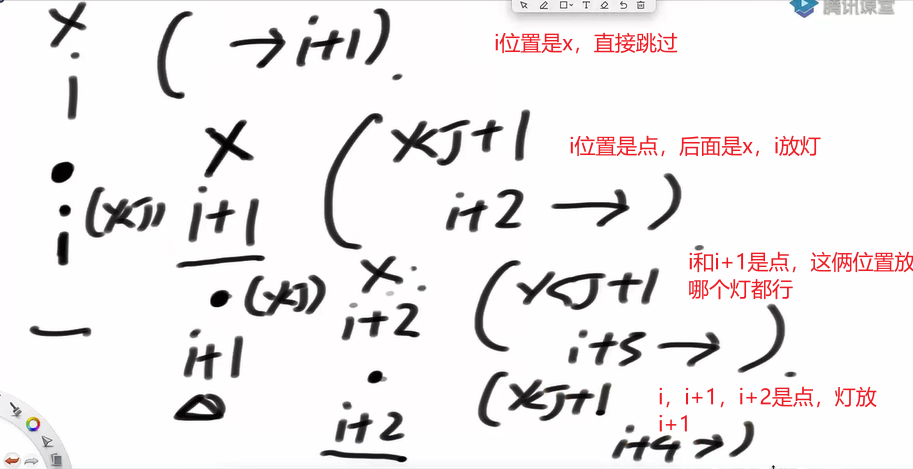 腾讯课堂
X
i
( → i+1).
i位置是x，直接跳过
i
(灯)
X
i+1
(灯+1
i+2 → )
i位置是点，后面是x，i放灯
(灯)
i+1
X
i+2
(灯+1
i+3 → )
i和i+1是点，这俩位置放
哪个灯都行
i+2
(灯+1
i+4 → )
i，i+1，i+2是点，灯放
i+1